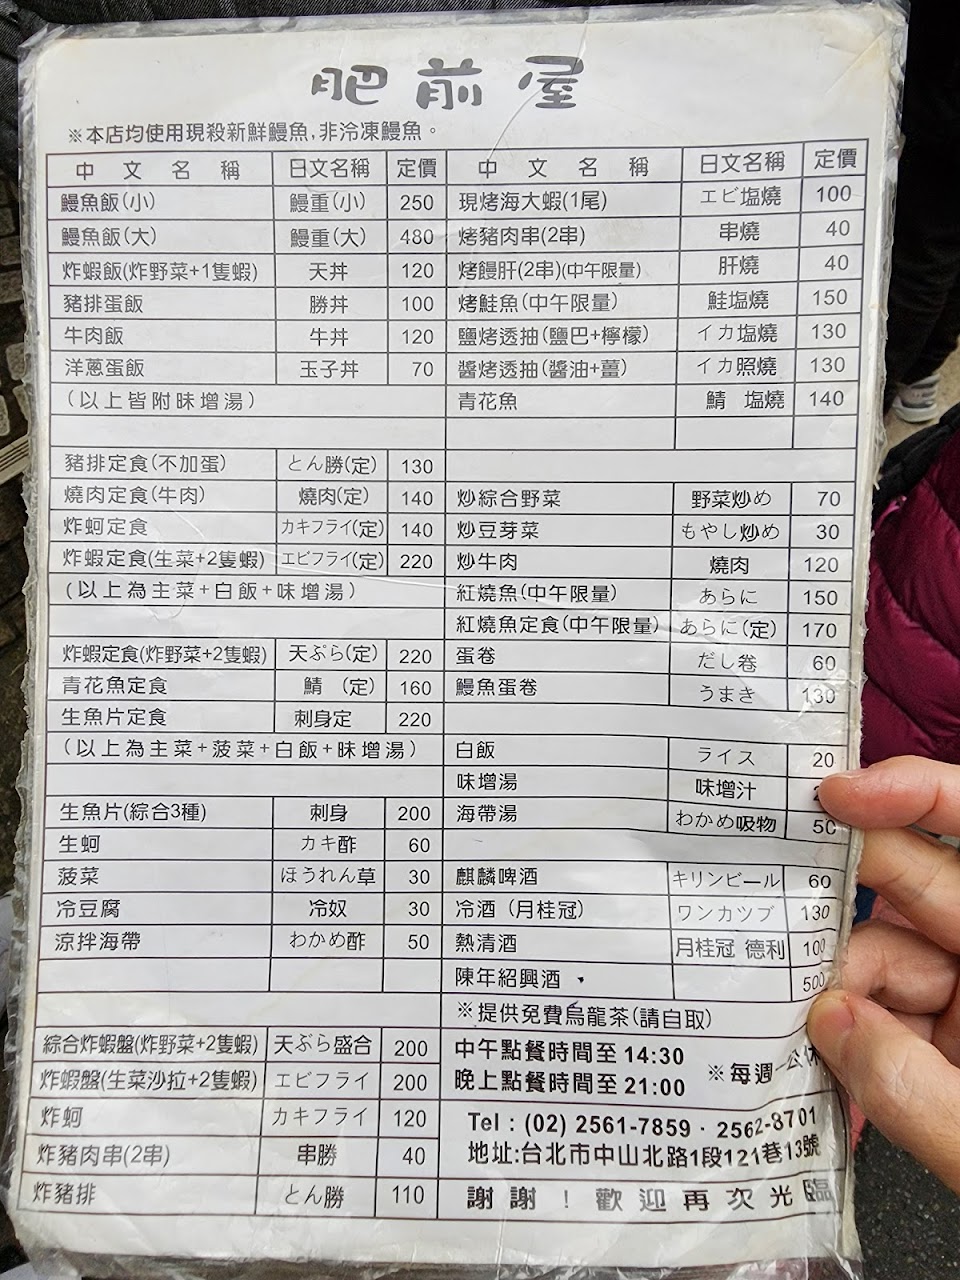 肥前屋
※本店均使用現殺新鮮鰻魚,非冷凍鰻魚。
中文名稱 日文名稱 定價
鰻魚飯(小) 鰻重(小) 250
鰻魚飯(大) 鰻重(大) 480
炸蝦飯(炸野菜+1隻蝦) 天丼 120
豬排蛋飯 勝丼 100
牛肉飯 牛丼 120
洋蔥蛋飯 玉子丼 70
(以上皆附味增湯)
豬排定食(不加蛋) とん勝(定) 130
燒肉定食(牛肉) 燒肉(定) 140
炸蚵定食 カキフライ(定) 140
炸蝦定食(生菜+2隻蝦) エビフライ(定) 220
(以上為主菜+白飯+味增湯)
炸蝦定食(炸野菜+2隻蝦) 天ぷら(定) 220
青花魚定食 鯖 (定) 160
生魚片定食 刺身定 220
(以上為主菜+菠菜+白飯+味增湯)
生魚片(綜合3種) 刺身 200
生蚵 カキ酢 60
菠菜 ほうれん草 30
冷豆腐 冷奴 30
涼拌海帶 わかめ酢 50
綜合炸蝦盤(炸野菜+2隻蝦) 天ぷら盛合 200
炸蝦盤(生菜沙拉+2隻蝦) エビフライ 200
炸蚵 カキフライ 120
炸豬肉串(2串) 串勝 40
炸豬排 とん勝 110
中文名稱 日文名稱 定價
現烤海大蝦(1尾) エビ塩燒 100
烤豬肉串(2串) 串燒 40
烤饅肝(2串)(中午限量) 肝燒 40
烤鮭魚(中午限量) 鮭塩燒 150
鹽烤透抽(鹽巴+檸檬) イカ塩燒 130
醬烤透抽(醬油+薑) イカ照燒 130
青花魚 鯖 塩燒 140
炒綜合野菜 野菜炒め 70
炒豆芽菜 もやし炒め 30
炒牛肉 燒肉 120
紅燒魚(中午限量) あらに 150
紅燒魚定食(中午限量) あらに(定) 170
蛋卷 だし卷 60
鰻魚蛋卷 うまき 130
白飯 ライス 20
味增湯 味增汁
海帶湯 わかめ吸物 50
麒麟啤酒 キリンビール 60
冷酒(月桂冠) ワンカツブ 130
熱清酒 月桂冠 德利 100
陳年紹興酒 500
※提供免費烏龍茶(請自取)
中午點餐時間至 14:30
晚上點餐時間至 21:00
※每週一公休
Tel：(02) 2561-7859．2562-8701
地址:台北市中山北路1段121巷13號
謝謝！歡迎再次光臨